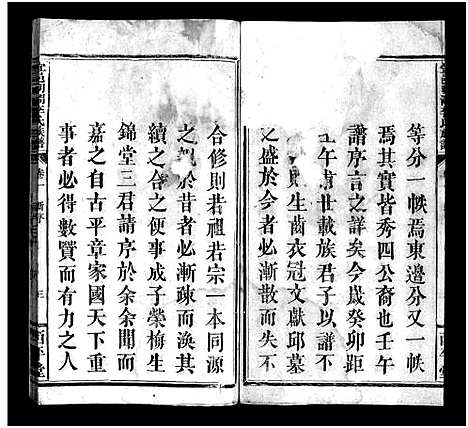 等分一帙焉東邊分又一帙
焉其實皆秀四公裔也壬午
譜序言之詳矣今歲癸卯距
午甫世載族君子以譜不
則生齒衣冠文獻邱墓
之盛於今者必漸散而失不
合修則若祖若宗一本同源
之於昔者必漸疎而渙其
續之合之便事成子榮梅生
錦堂三君請序於余余聞而
嘉之自古平章家國天下重
事者必得數賢而有力之人